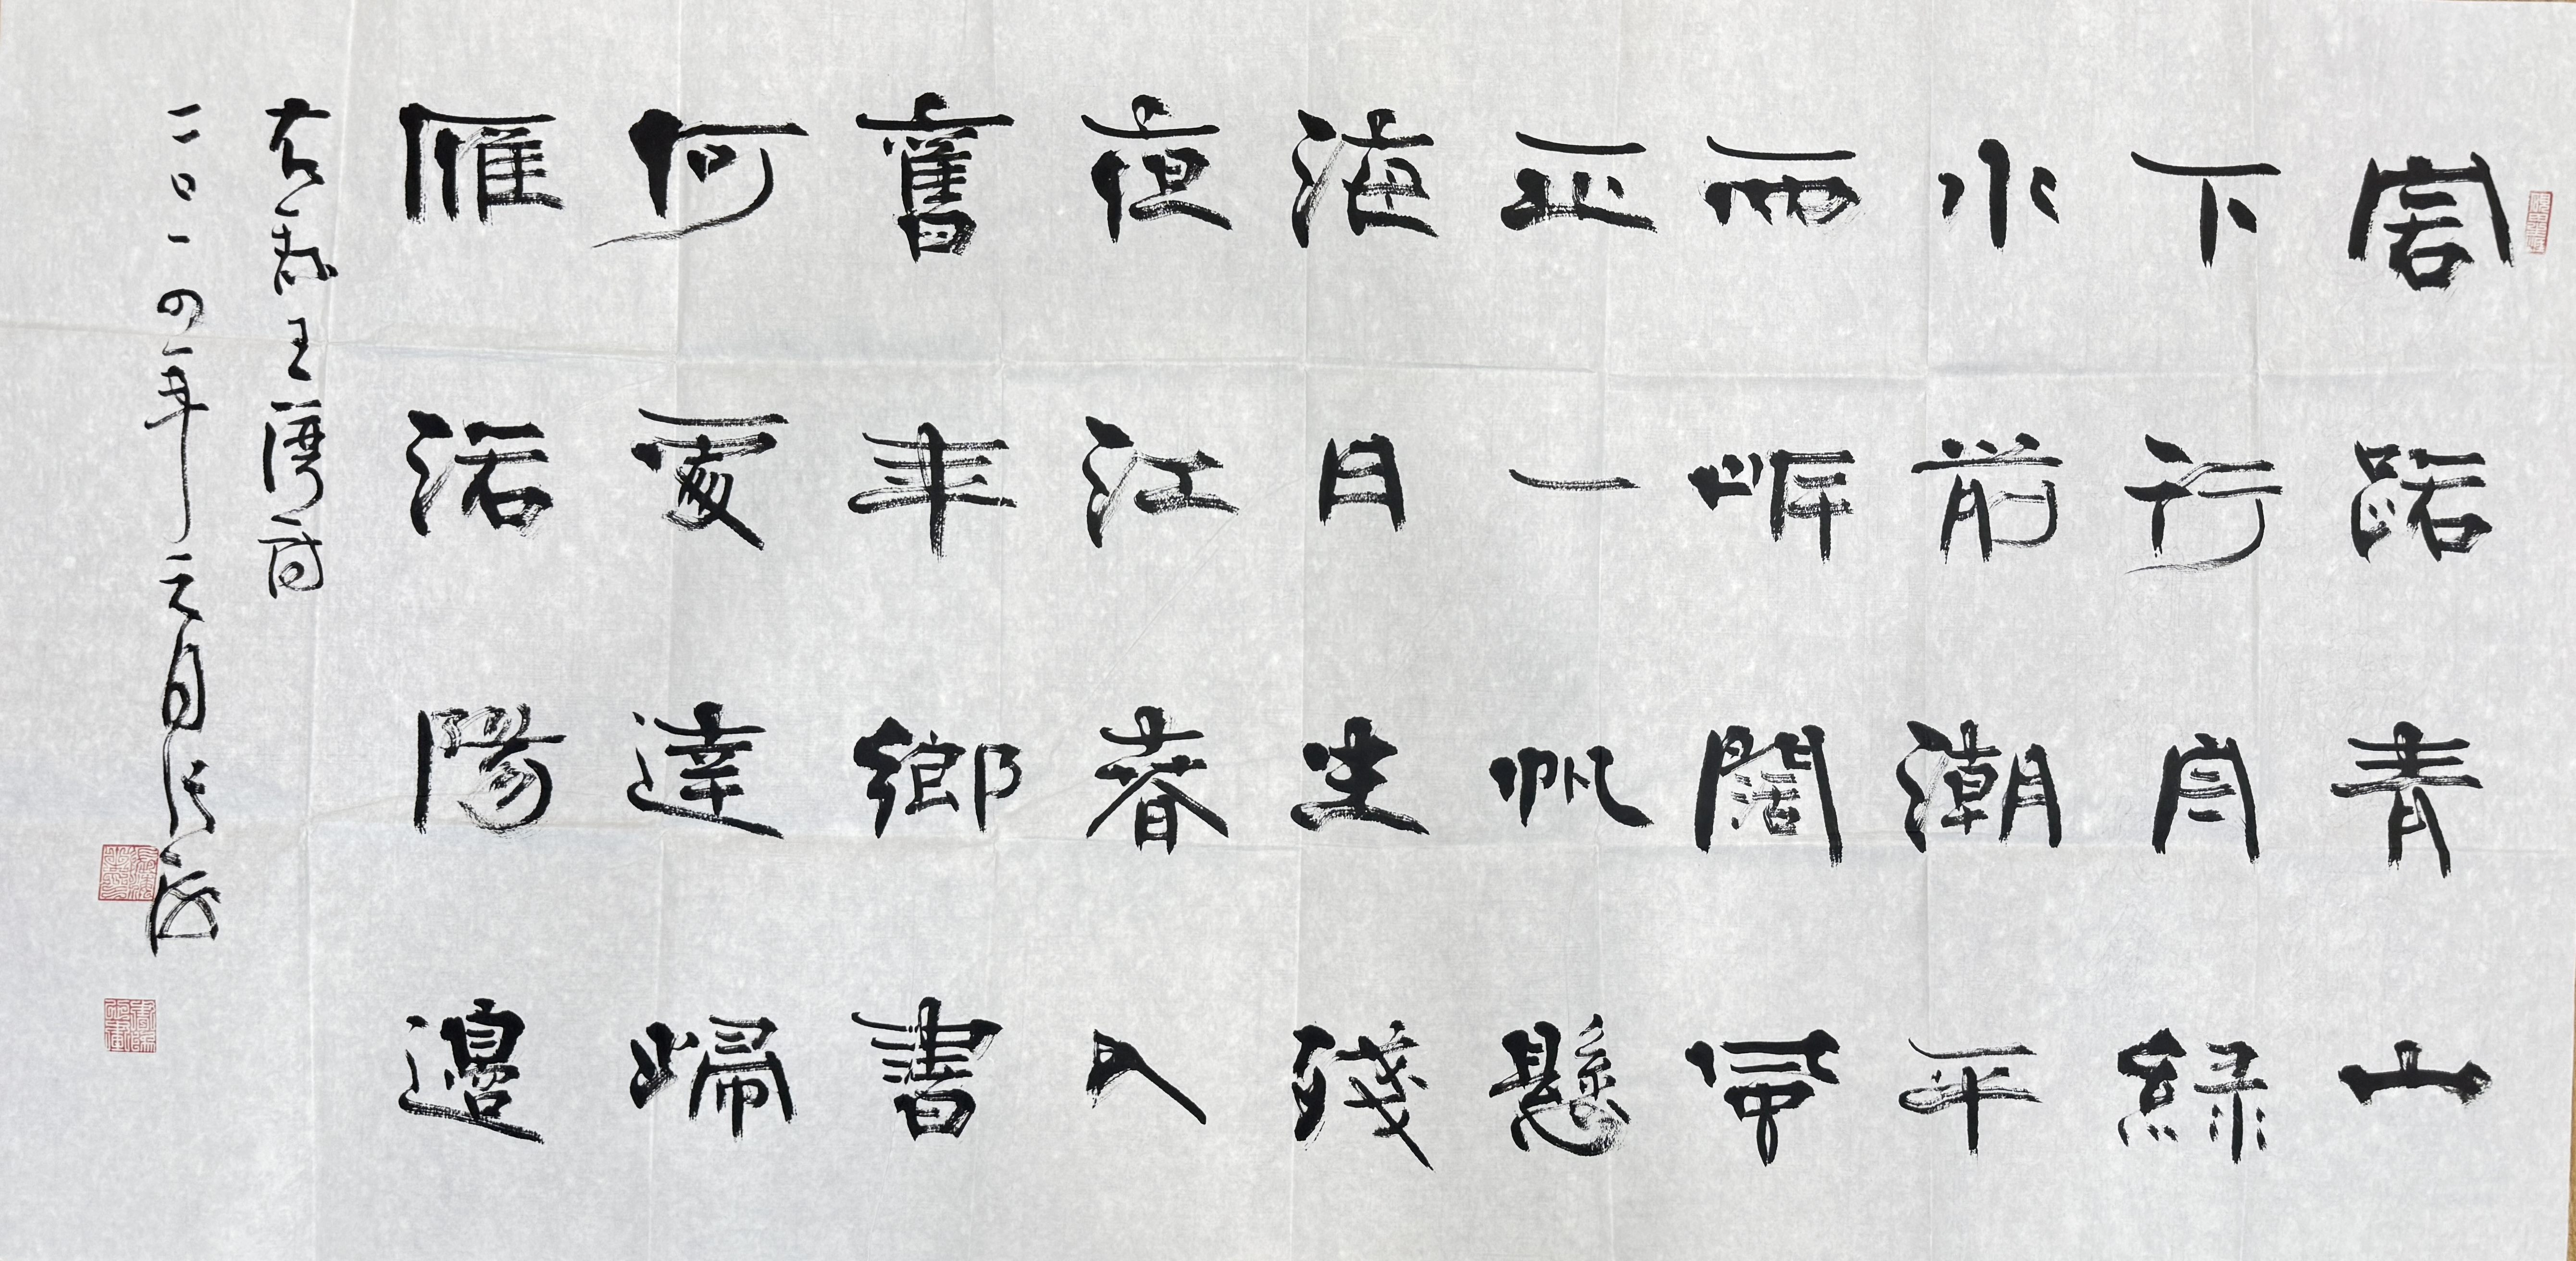 客路青山
下行舟綠
水前潮平
兩岸闊風
正一帆懸
海日生殘
夜江春入
舊年鄉書
何處達歸
雁洛陽邊
右 王灣詩
二〇一四年元月張海